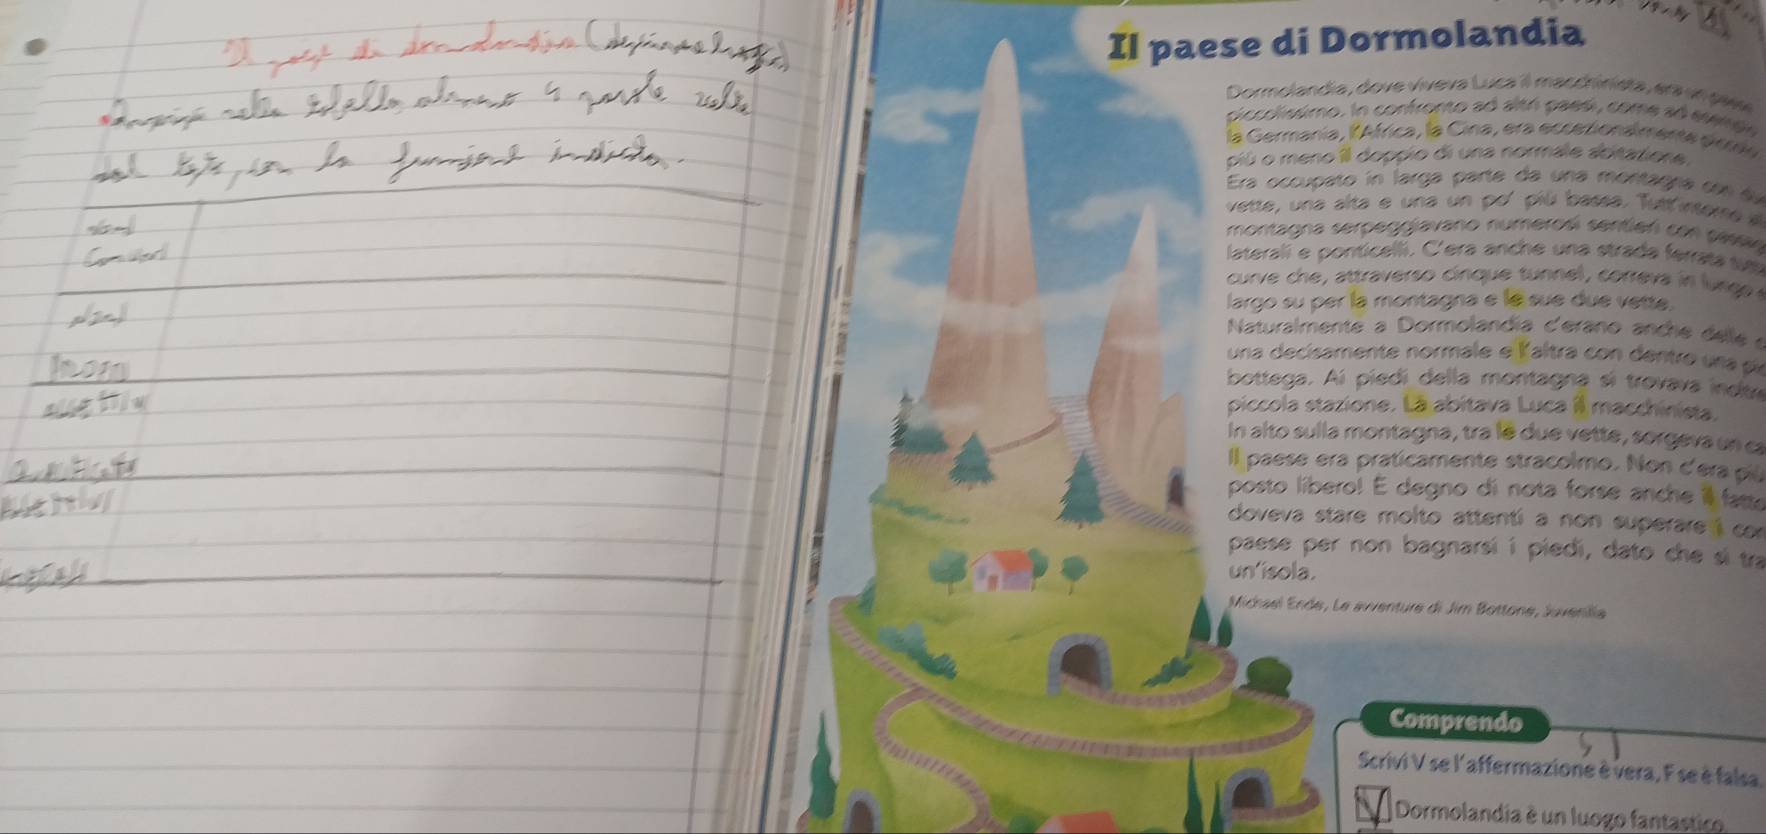 Il paese di dormolandia
Inserisci nella tabella almeno 4 parole
del testo, con la funzione indicata.
nomi
nomi
aggettivi
aggettivi
Il paese di Dormolandia
Dormolandia, dove viveva Luca il macchinista, era un paese
piccolissimo. In confronto ad altri paesi, come ad esempio
la Germania, l'Africa, la Cina, era eccezionalmente piccolo
più o meno il doppio di una normale abitazione.
Era occupato in larga parte da una montagna con due
vette, una alta e una un po' più bassa. Tutt'intorno alla
montagna serpeggiavano numerosi sentieri con
laterali e ponticelli. C'era anche una strada ferrata
curve che, attraverso cinque tunnel, correva in lungo e
largo su per la montagna e le sue due vette.
Naturalmente a Dormolandia c'erano anche delle
una decisamente normale e l'altra con dentro una
bottega. Ai piedi della montagna si trovava
piccola stazione. Là abitava Luca il macchinista.
In alto sulla montagna, tra le due vette, sorgeva un
Il paese era praticamente stracolmo. Non c'era più
posto libero! È degno di nota forse anche il fatto
doveva stare molto attenti a non superare i
paese per non bagnarsi i piedi, dato che si
un'isola.
Michael Ende, Le avventure di Jim Bottone, Juvenilia
Comprendo
Scrivi V se l'affermazione è vera, F se è falsa.
V Dormolandia è un luogo fantastico.